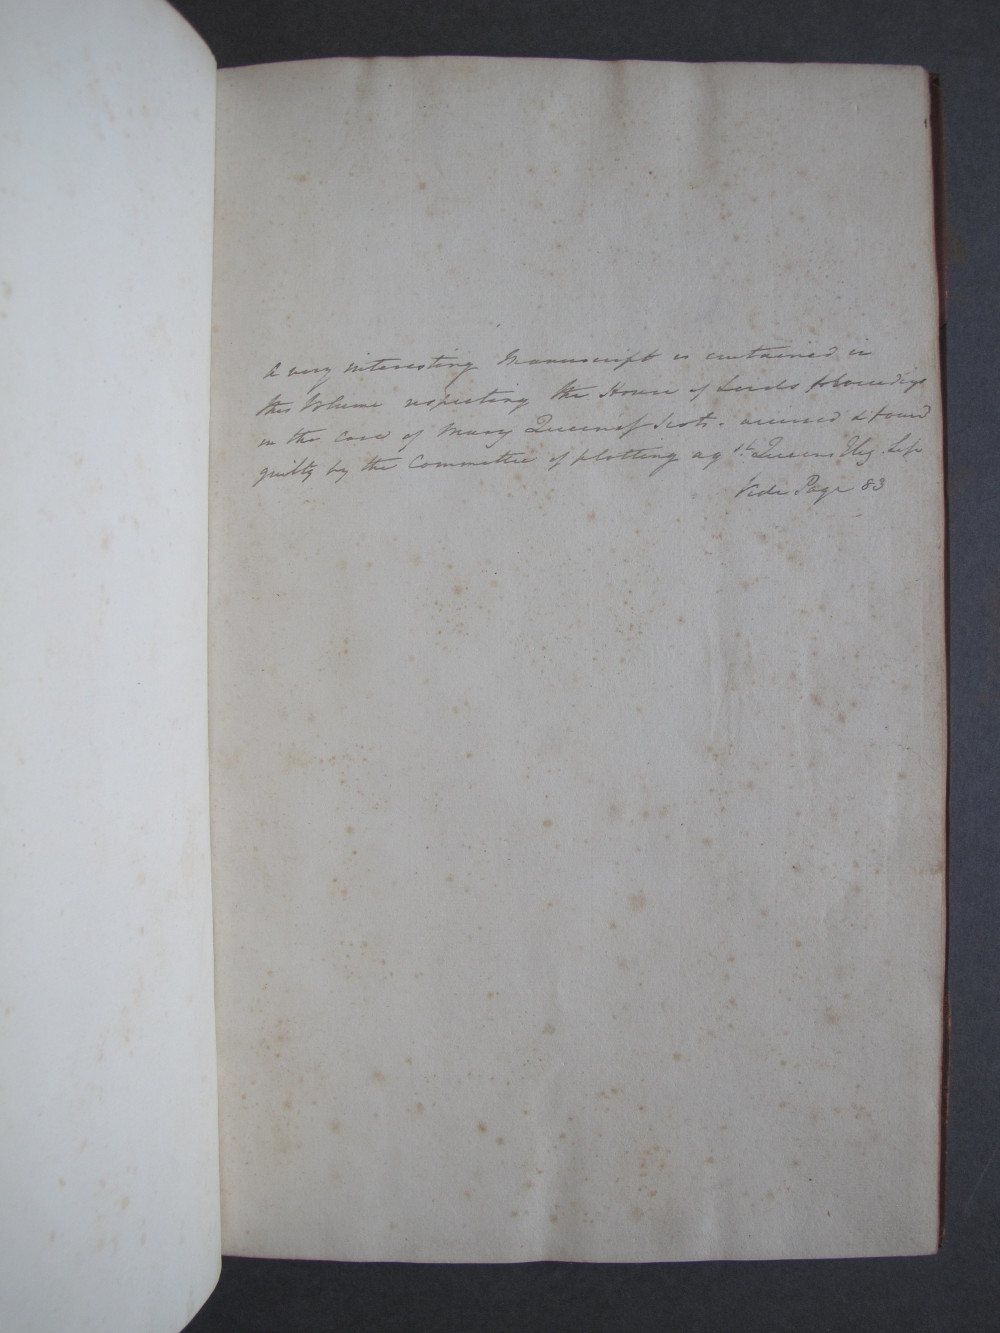 A very interesting Manuscript is contained in
this Volume respecting the House of Lords proceedings
in the case of Mary Queen of Scots. accused & found
guilty by the Committee of plotting ag.st Queens Eliz. Life
Vide Page 83